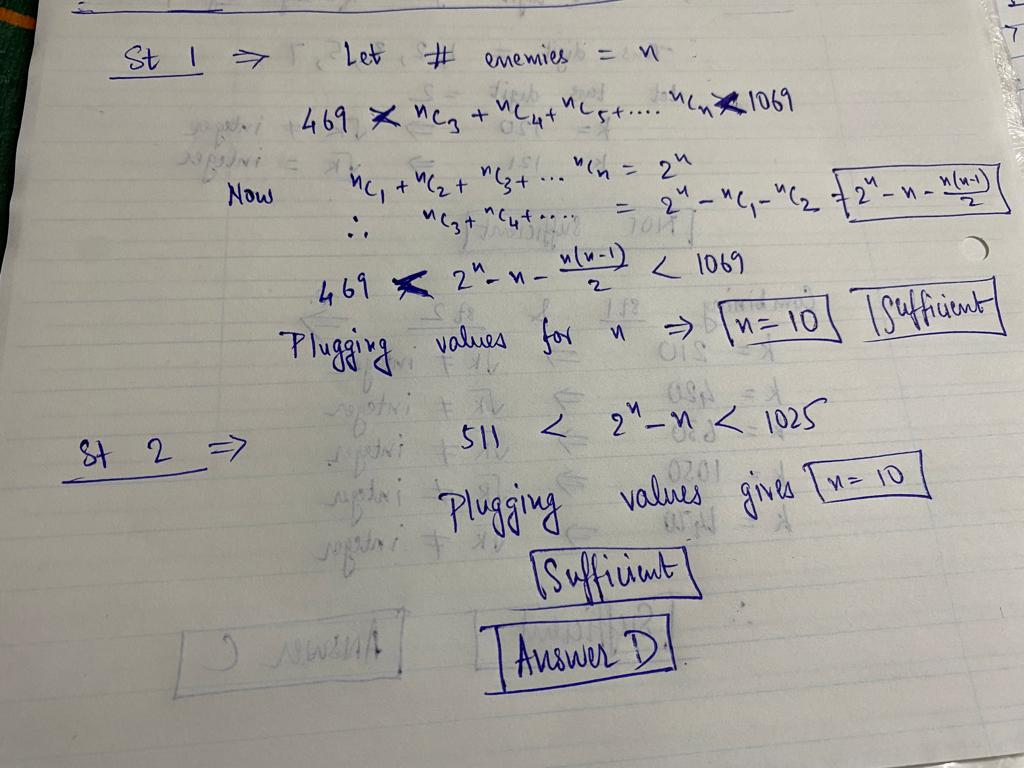 St 1 ⇒ Let # enemies = n
469 < nC3 + nC4 + nC5 + .... nCn < 1069
Now nC1 + nC2 + nC3 + ... nCn = 2^n
∴ nC3 + nC4 + .... = 2^n - nC1 - nC2 = 2^n - n - n(n-1)/2
469 < 2^n - n - n(n-1)/2 < 1069
Plugging values for n ⇒ n = 10 Sufficient
St 2 ⇒ 511 < 2^n - n < 1025
Plugging values gives n = 10
Sufficient
Answer D